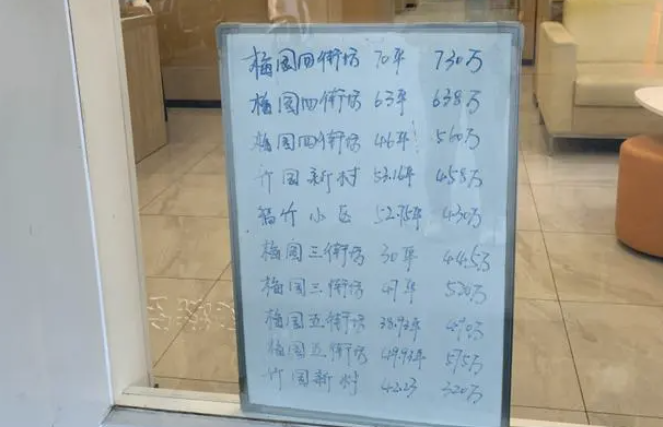 梅园四街坊 70平 730万
梅园四街坊 63平 638万
梅园四街坊 46平 560万
竹园新村 53.16平 458万
福竹小区 52.75平 430万
梅园三街坊 30平 445万
梅园三街坊 47平 520万
梅园五街坊 38.93平 470万
梅园五街坊 49.93平 575万
竹园新村 42.23 320万